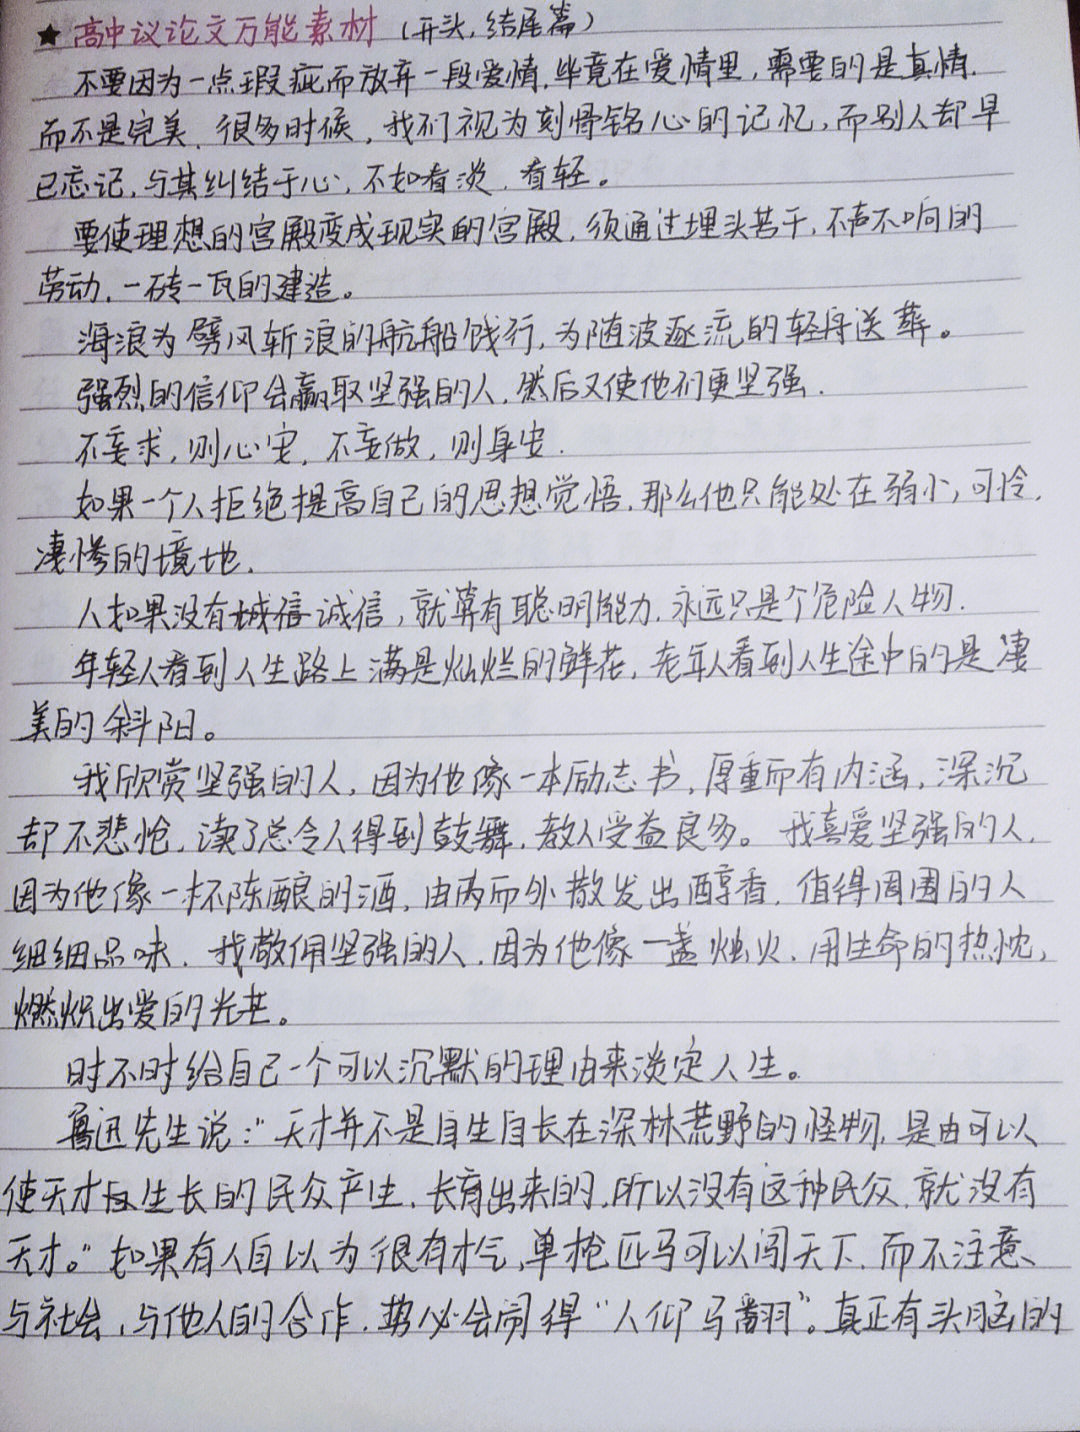 ★ 高中议论文万能素材（开头,结尾篇）
不要因为一点瑕疵而放弃一段爱情,毕竟在爱情里,需要的是真情.
而不是完美.很多时候,我们视为刻骨铭心的记忆,而别人却早
已忘记,与其纠结于心,不如看淡.看轻。
要使理想的宫殿变成现实的宫殿,须通过埋头苦干,不声不响的
劳动,一砖一瓦的建造。
海浪为劈风斩浪的航船饯行,为随波逐流的轻舟送葬。
强烈的信仰会赢取坚强的人,然后又使他们更坚强.
不妄求,则心安,不妄做,则身安.
如果一个人拒绝提高自己的思想觉悟,那么他只能处在弱小,可怜,
凄惨的境地.
人如果没有诚信,就算有聪明能力,永远只是个危险人物.
年轻人看到人生路上满是灿烂的鲜花,老年人看到人生途中的是凄
美的斜阳。
我欣赏坚强的人,因为他像一本励志书,厚重而有内涵,深沉
却不悲怆,读了总令人得到鼓舞,教人受益良多。我喜爱坚强的人,
因为他像一杯陈酿的酒,由内而外散发出醇香,值得周围的人
细细品味.我敬佣坚强的人,因为他像一盏烛火.用生命的热忱,
燃炽出爱的光芒。
时不时给自己一个可以沉默的理由来淡定人生。
鲁迅先生说:"天才并不是自生自长在深林荒野的怪物,是由可以
使天才生长的民众产生,长育出来的,所以没有这种民众,就没有
天才。"如果有人自以为很有才气,单枪匹马可以闯天下,而不注意
与社会,与他人的合作,势必会闹得"人仰马翻"。真正有头脑的